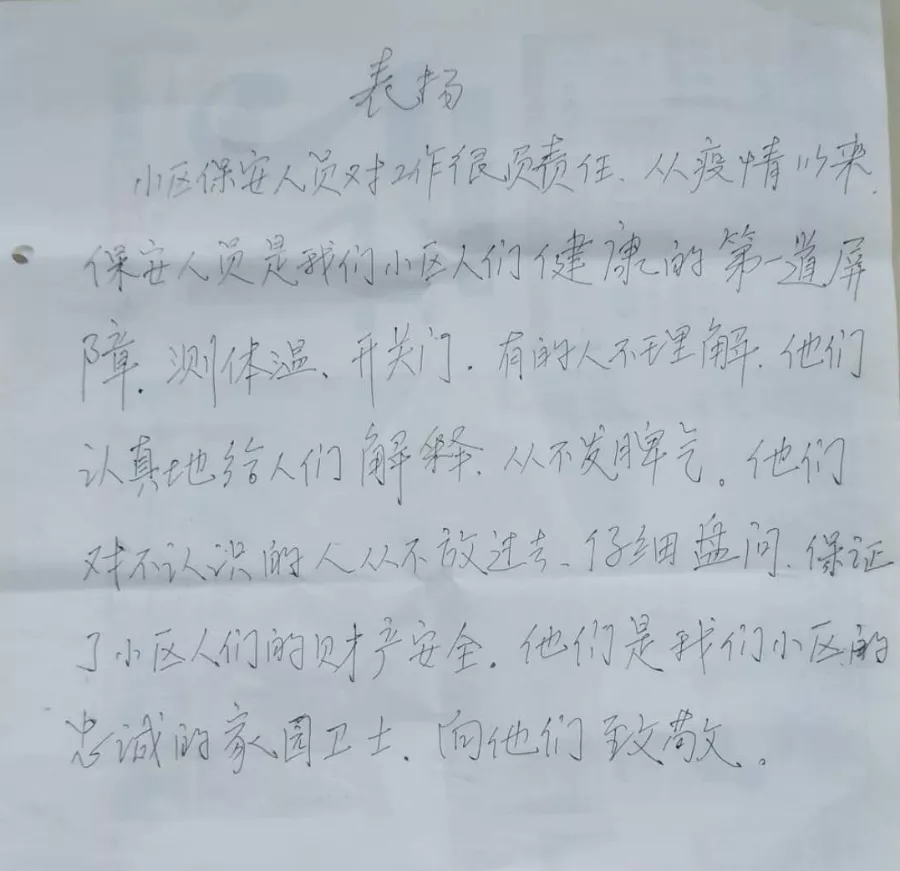 表扬
小区保安人员对工作很负责任、从疫情以来、
保安人员是我们小区人们健康的第一道屏
障. 测体温、开关门. 有的人不理解. 他们
认真地给人们解释、从不发脾气。他们
对不认识的人从不放过去、仔细盘问、保证
了小区人们的财产安全. 他们是我们小区的
忠诚的家园卫士. 向他们致敬。